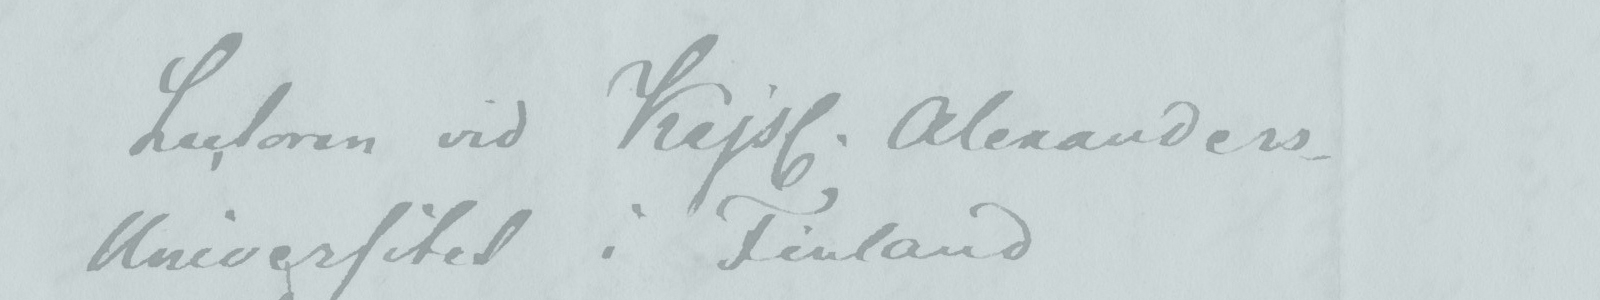 Lectoren vid Kejsl. Alexanders-
Universitet i Finland